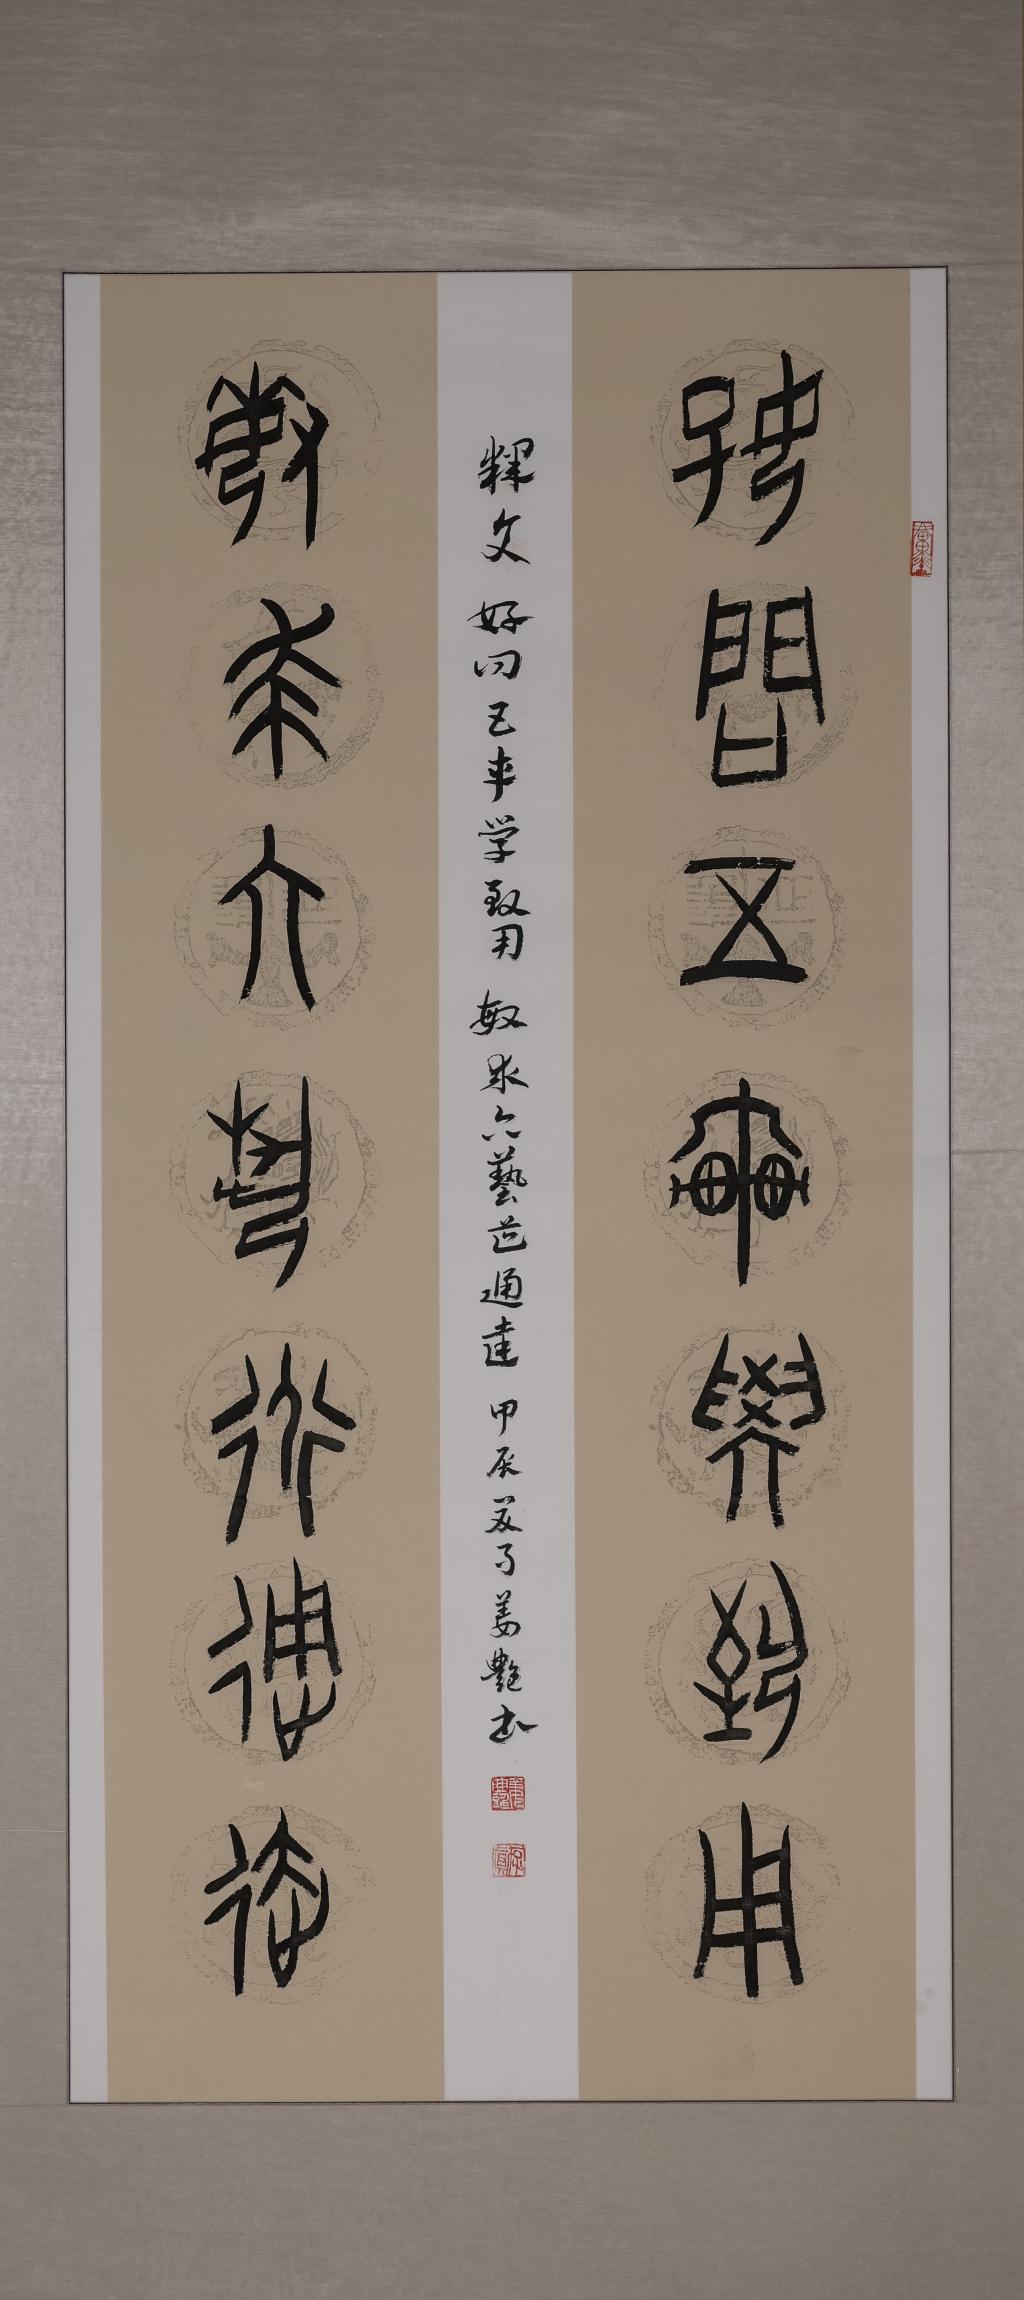 好問五車學致用
敏求六藝道通達
釋文 好问五車学致用 敏求六藝芒通達 甲辰夏月姜艷书